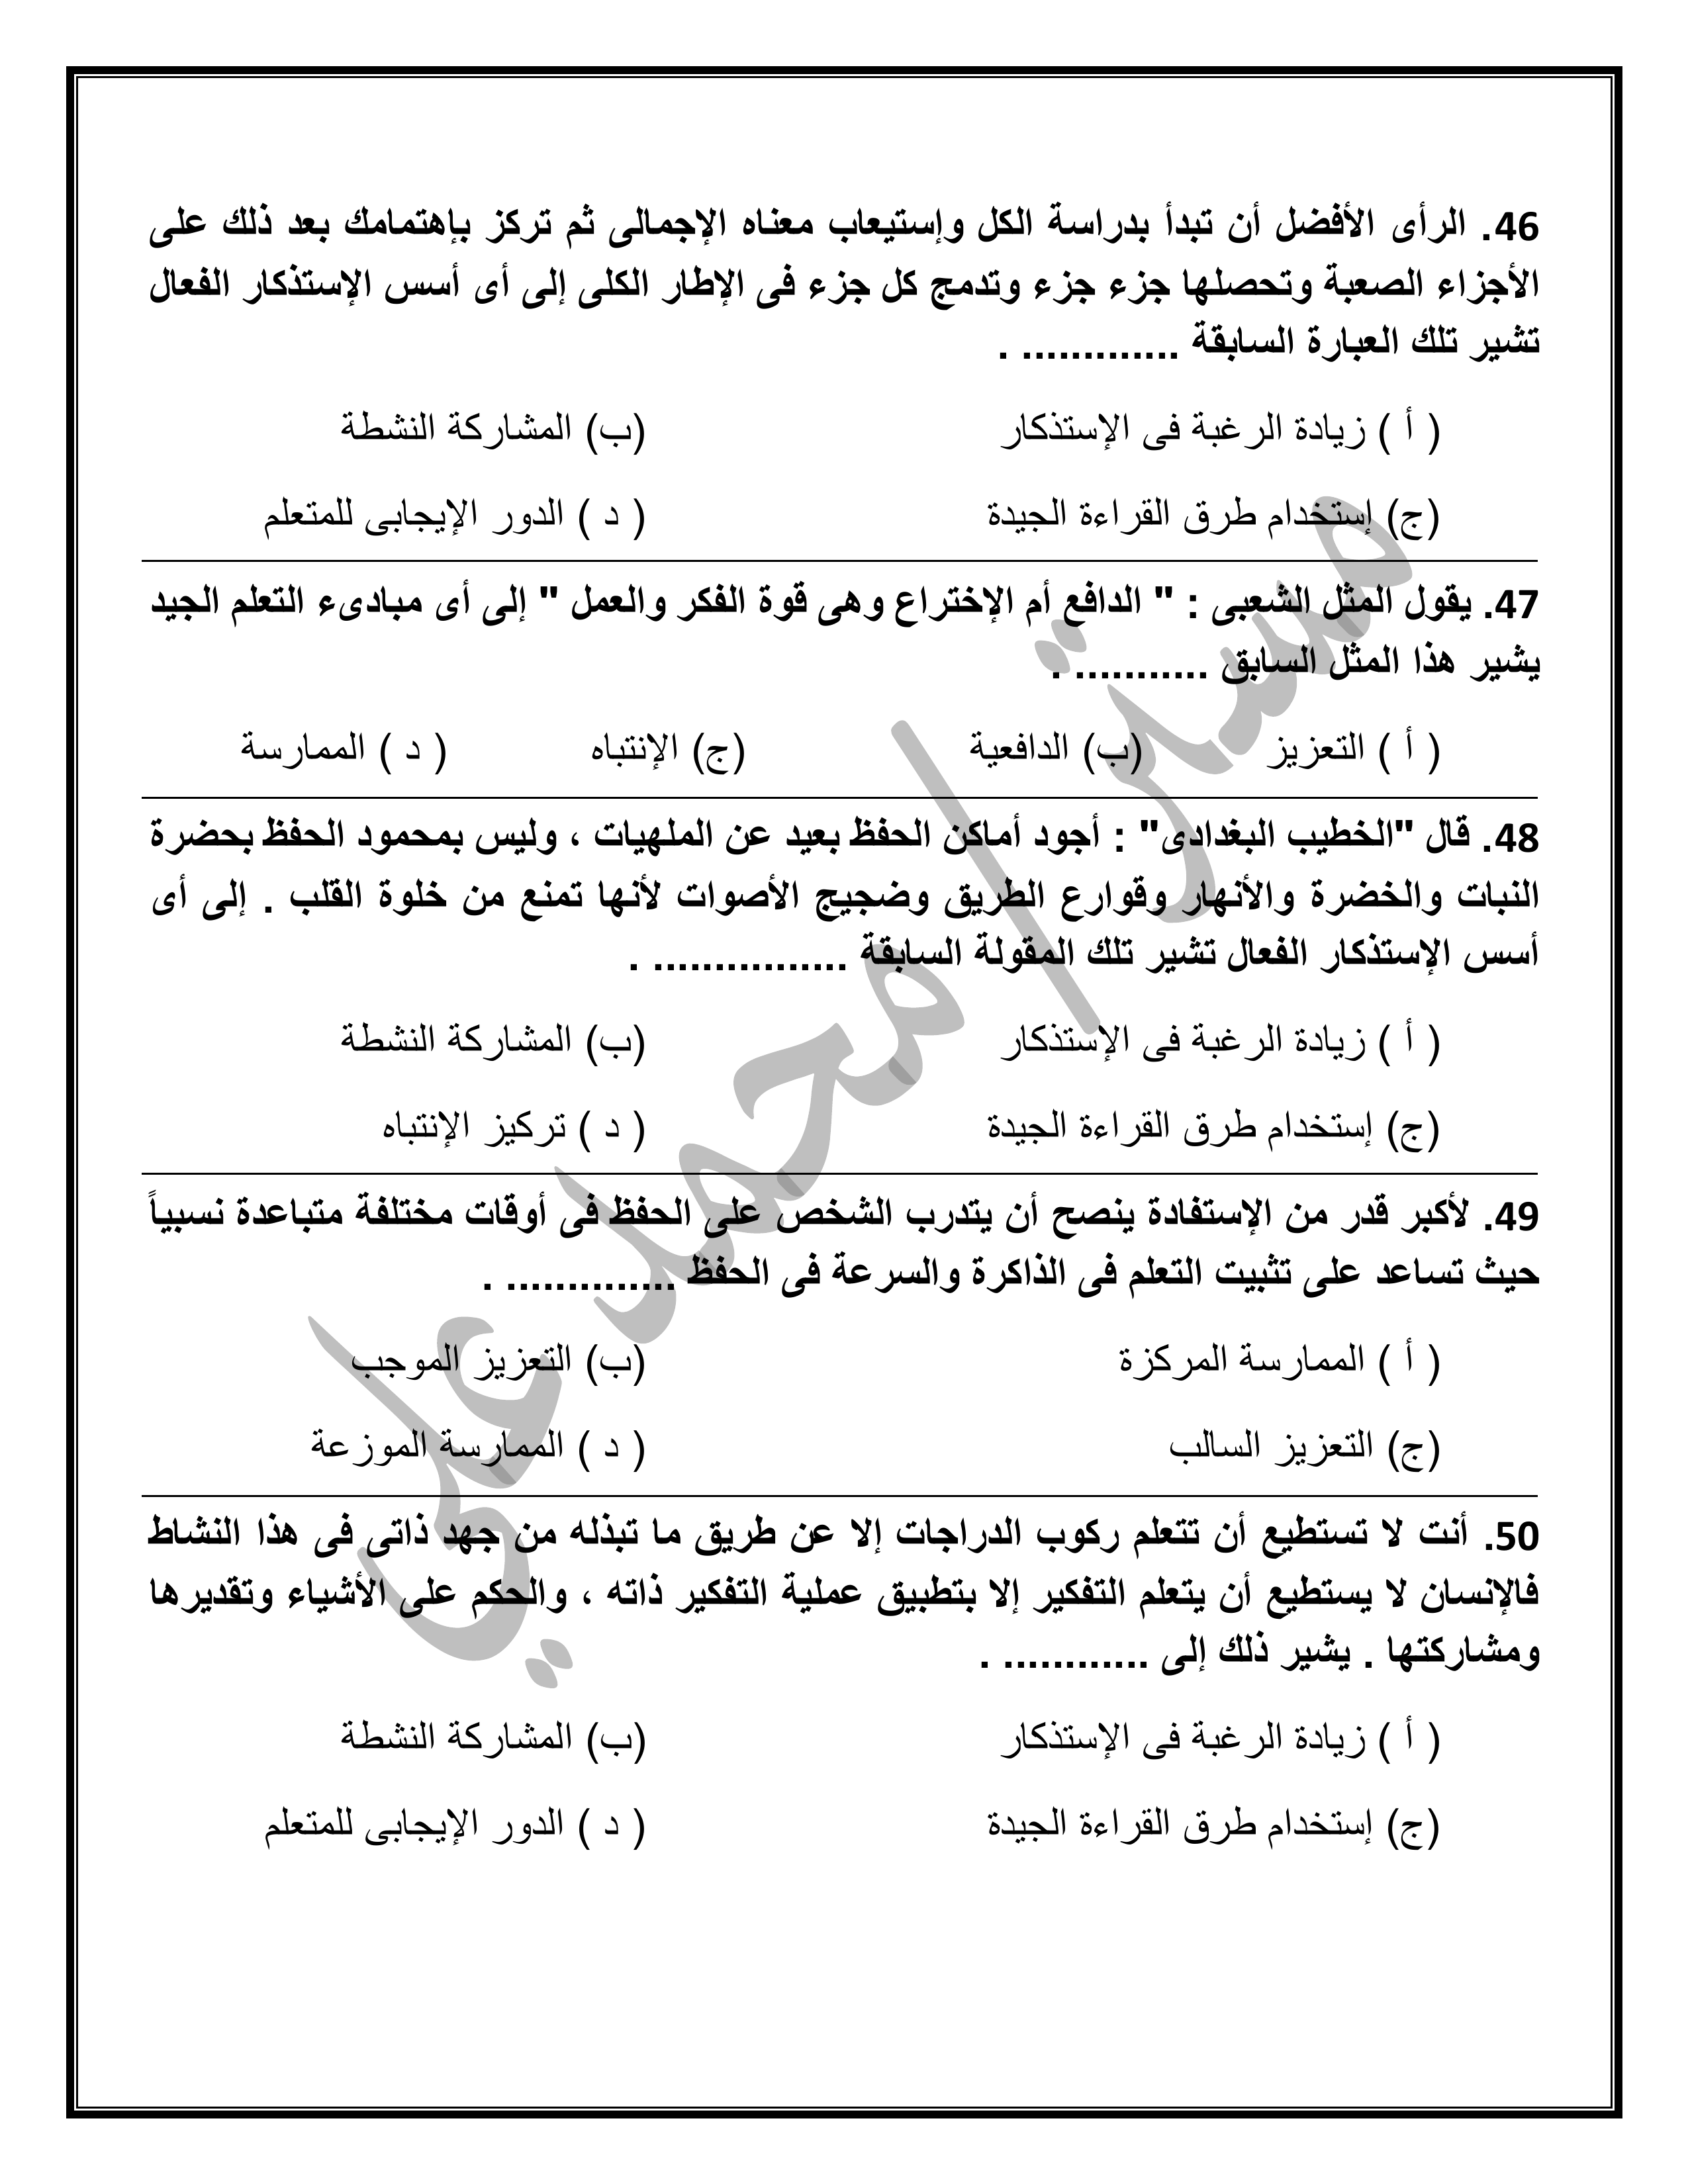 46. الرأى الأفضل أن تبدأ بدراسة الكل وإستيعاب معناه الإجمالى ثم تركز بإهتمامك بعد ذلك على
الأجزاء الصعبة وتحصلها جزء جزء وتدمج كل جزء فى الإطار الكلى إلى أى أسس الإستذكار الفعال
تشير تلك العبارة السابقة ............. .
( أ ) زيادة الرغبة فى الإستذكار (ب) المشاركة النشطة
(ج) إستخدام طرق القراءة الجيدة ( د ) الدور الإيجابى للمتعلم
47. يقول المثل الشعبى : " الدافع أم الإختراع وهى قوة الفكر والعمل " إلى أى مبادىء التعلم الجيد
يشير هذا المثل السابق ........... .
( أ ) التعزيز (ب) الدافعية (ج) الإنتباه ( د ) الممارسة
48. قال "الخطيب البغدادى" : أجود أماكن الحفظ بعيد عن الملهيات ، وليس بمحمود الحفظ بحضرة
النبات والخضرة والأنهار وقوارع الطريق وضجيج الأصوات لأنها تمنع من خلوة القلب . إلى أى
أسس الإستذكار الفعال تشير تلك المقولة السابقة ................ .
( أ ) زيادة الرغبة فى الإستذكار (ب) المشاركة النشطة
(ج) إستخدام طرق القراءة الجيدة ( د ) تركيز الإنتباه
49. لأكبر قدر من الإستفادة ينصح أن يتدرب الشخص على الحفظ فى أوقات مختلفة متباعدة نسبياً
حيث تساعد على تثبيت التعلم فى الذاكرة والسرعة فى الحفظ .............. .
( أ ) الممارسة المركزة (ب) التعزيز الموجب
(ج) التعزيز السالب ( د ) الممارسة الموزعة
50. أنت لا تستطيع أن تتعلم ركوب الدراجات إلا عن طريق ما تبذله من جهد ذاتى فى هذا النشاط
فالإنسان لا يستطيع أن يتعلم التفكير إلا بتطبيق عملية التفكير ذاته ، والحكم على الأشياء وتقديرها
ومشاركتها . يشير ذلك إلى ............ .
( أ ) زيادة الرغبة فى الإستذكار (ب) المشاركة النشطة
(ج) إستخدام طرق القراءة الجيدة ( د ) الدور الإيجابى للمتعلم
مستر/محمد علي